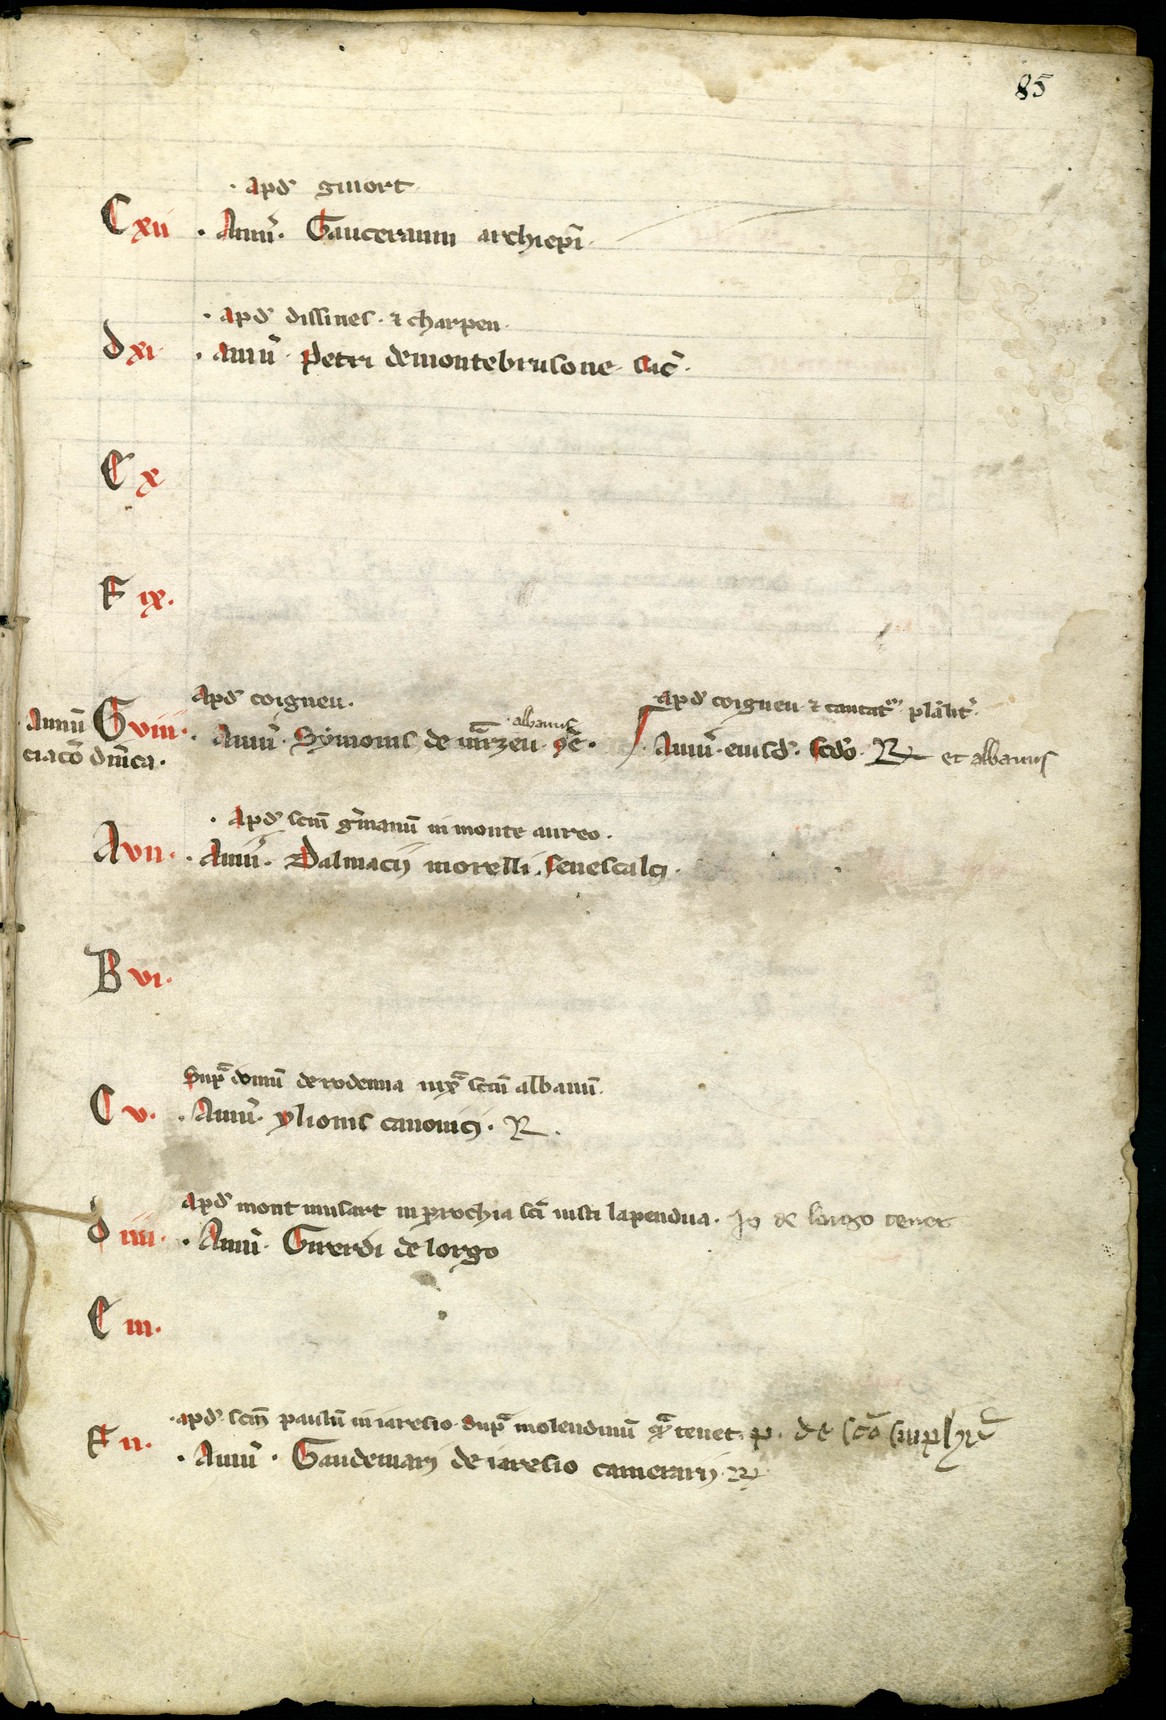 85
· Apd' giuort
C xii · Anniũ· Gauceranni archiepĩ·
· Apd' dissines · ⁊ charpen·
d xi · anniũ · Petri demontebrusone sac̃·
E x
F ix.
Apd' coigneu. apd' coigneu ⁊ cantat'
albanus
Annũ G viii · Anniũ · Symonis de · Anniũ· eiusd'· scdo· R et albanus
ciacõ dñica.
· Apd' scm̃ g'manũ in monte aureo.
A vii · · Anniũ· Dalmacij morelli senescalci·
B vi·
Sup̃ domũ derodenna iuxª scm̃ albanũ·
C v· · Anniũ· ylionis canonici · R .
apd' mont musart in prochia scĩ iusti lapendua · Jo de lorgo tenet
d iiii· · Anniũ · Girerdi de lorgo
E iii·
· apd' scm̃ paulũ in iaresio supª molendinũ qª tenet p· de scõ
F ii· · Anniũ · Gaudemarij de iaresio camerarij R